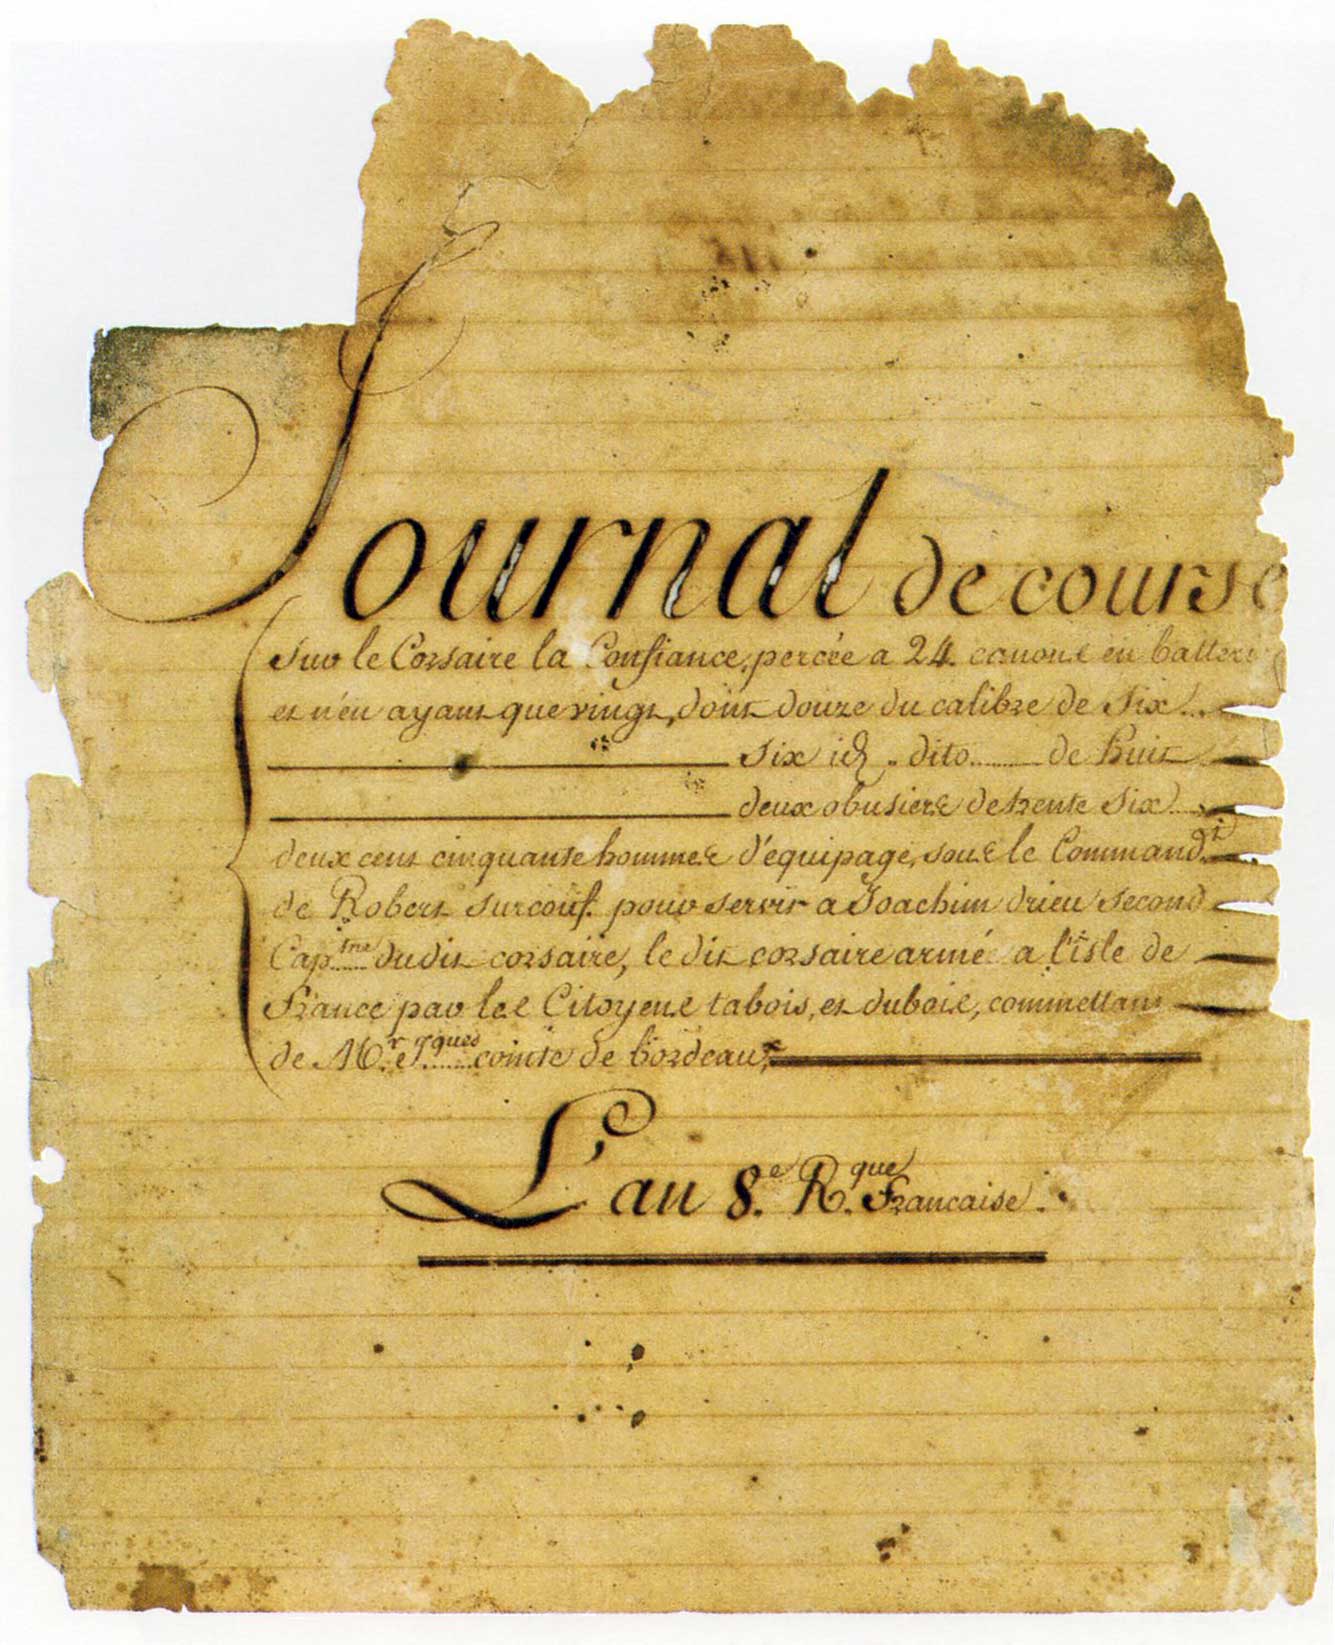 Journal de course
sur le Corsaire la Confiance, percée a 24. canons en batterie
et n'en ayant que vingt, dont douze du calibre de six
six id. dito de huit
deux obusiers de trente six
deux cent cinquante hommes d'équipage, sous le Command.t
de Robert surcouf. pour servir a Joachim drieu second
Cap.ine dudit corsaire, le dit corsaire armé a l'isle de
France par les Citoyens tabois, et dubois, commettans
de M.r J.ques cointe de bordeaux,
L'an 8.e R.que Francaise.